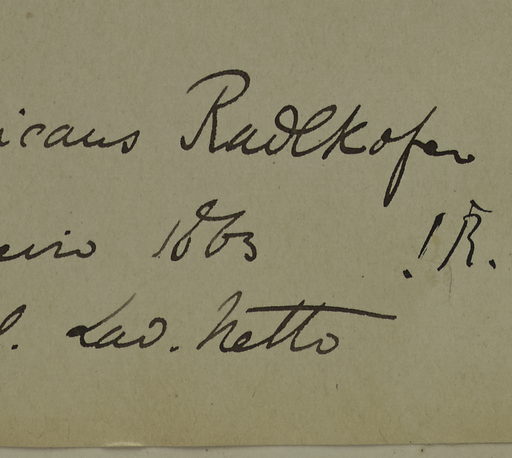 icans Radlkofer
eiro 1863 !R.
l. Lad. Netto